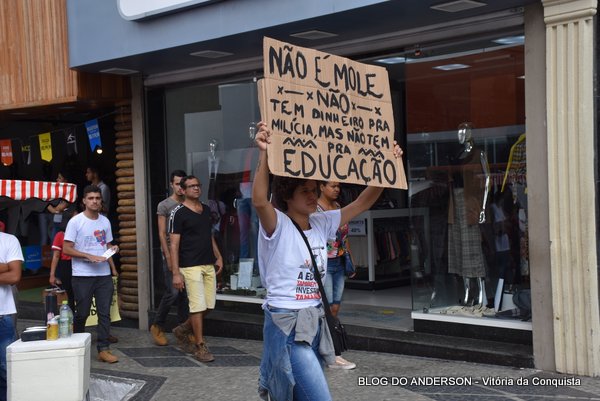 NÃO É MOLE
NÃO
TEM DINHEIRO PRA
MILÍCIA, MAS NÃO TEM
PRA
EDUCAÇÃO
A EDU
BLOG DO ANDERSON - Vitória da Conquista